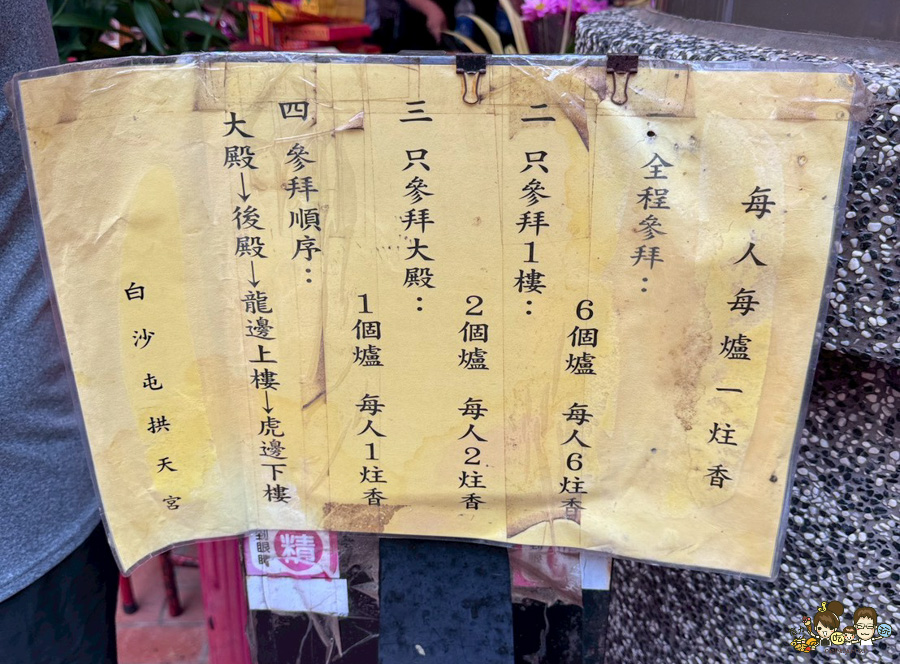 每人每爐一炷香
全程參拜：
6個爐 每人6炷香
二 只參拜1樓：
2個爐 每人2炷香
三 只參拜大殿：
1個爐 每人1炷香
四 參拜順序：
大殿→後殿→龍邊上樓→虎邊下樓
白沙屯拱天宮
精